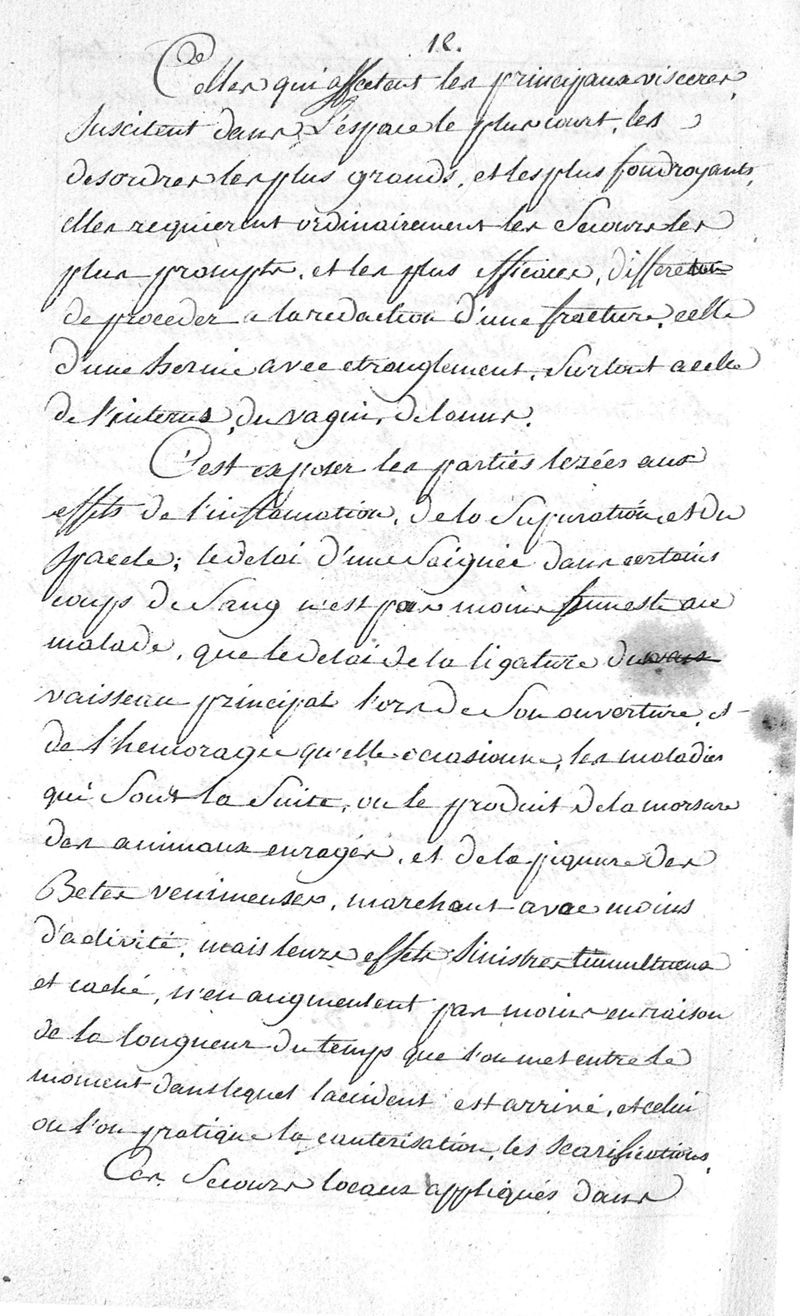 12.
Celles qui affectent les principaux visceres,
suscitent dans l'espace le plus court, les
desordres les plus grands, et les plus foudroyants,
elles requierent ordinairement les Secours les
plus prompts, et les plus efficaces, differer
de proceder a la reduction d'une fracture, celle
d'une hernie avec etranglement, Surtout a celle
de l'uterus, du vagin, de l'anus.
C'est exposer les parties lezées aux
effets de l'inflamation, de la Supuration et du
spacele; le delai d'une Saignée dans certains
coups de Sang n'est pas moins funeste au
malade, que le delai de la ligature du
vaisseau principal lors de Son ouverture, et
de l'hemoragie qu'elle occasionne, les maladies
qui Sont la Suite, ou le produit de la morsure
des animaux enragés, et de la piqure des
Betes venimeuses, marchent avec moins
d'activité, mais leurs effets Sinistres tumultueux
et caché, n'en augmentent pas moins en raison
de la longueur du temps que l'on met entre le
moment dans lequel l'accident est arrivé, et celui
ou l'on pratique la cauterisation, les scarifications.
Ces Secours locaux appliqués dans